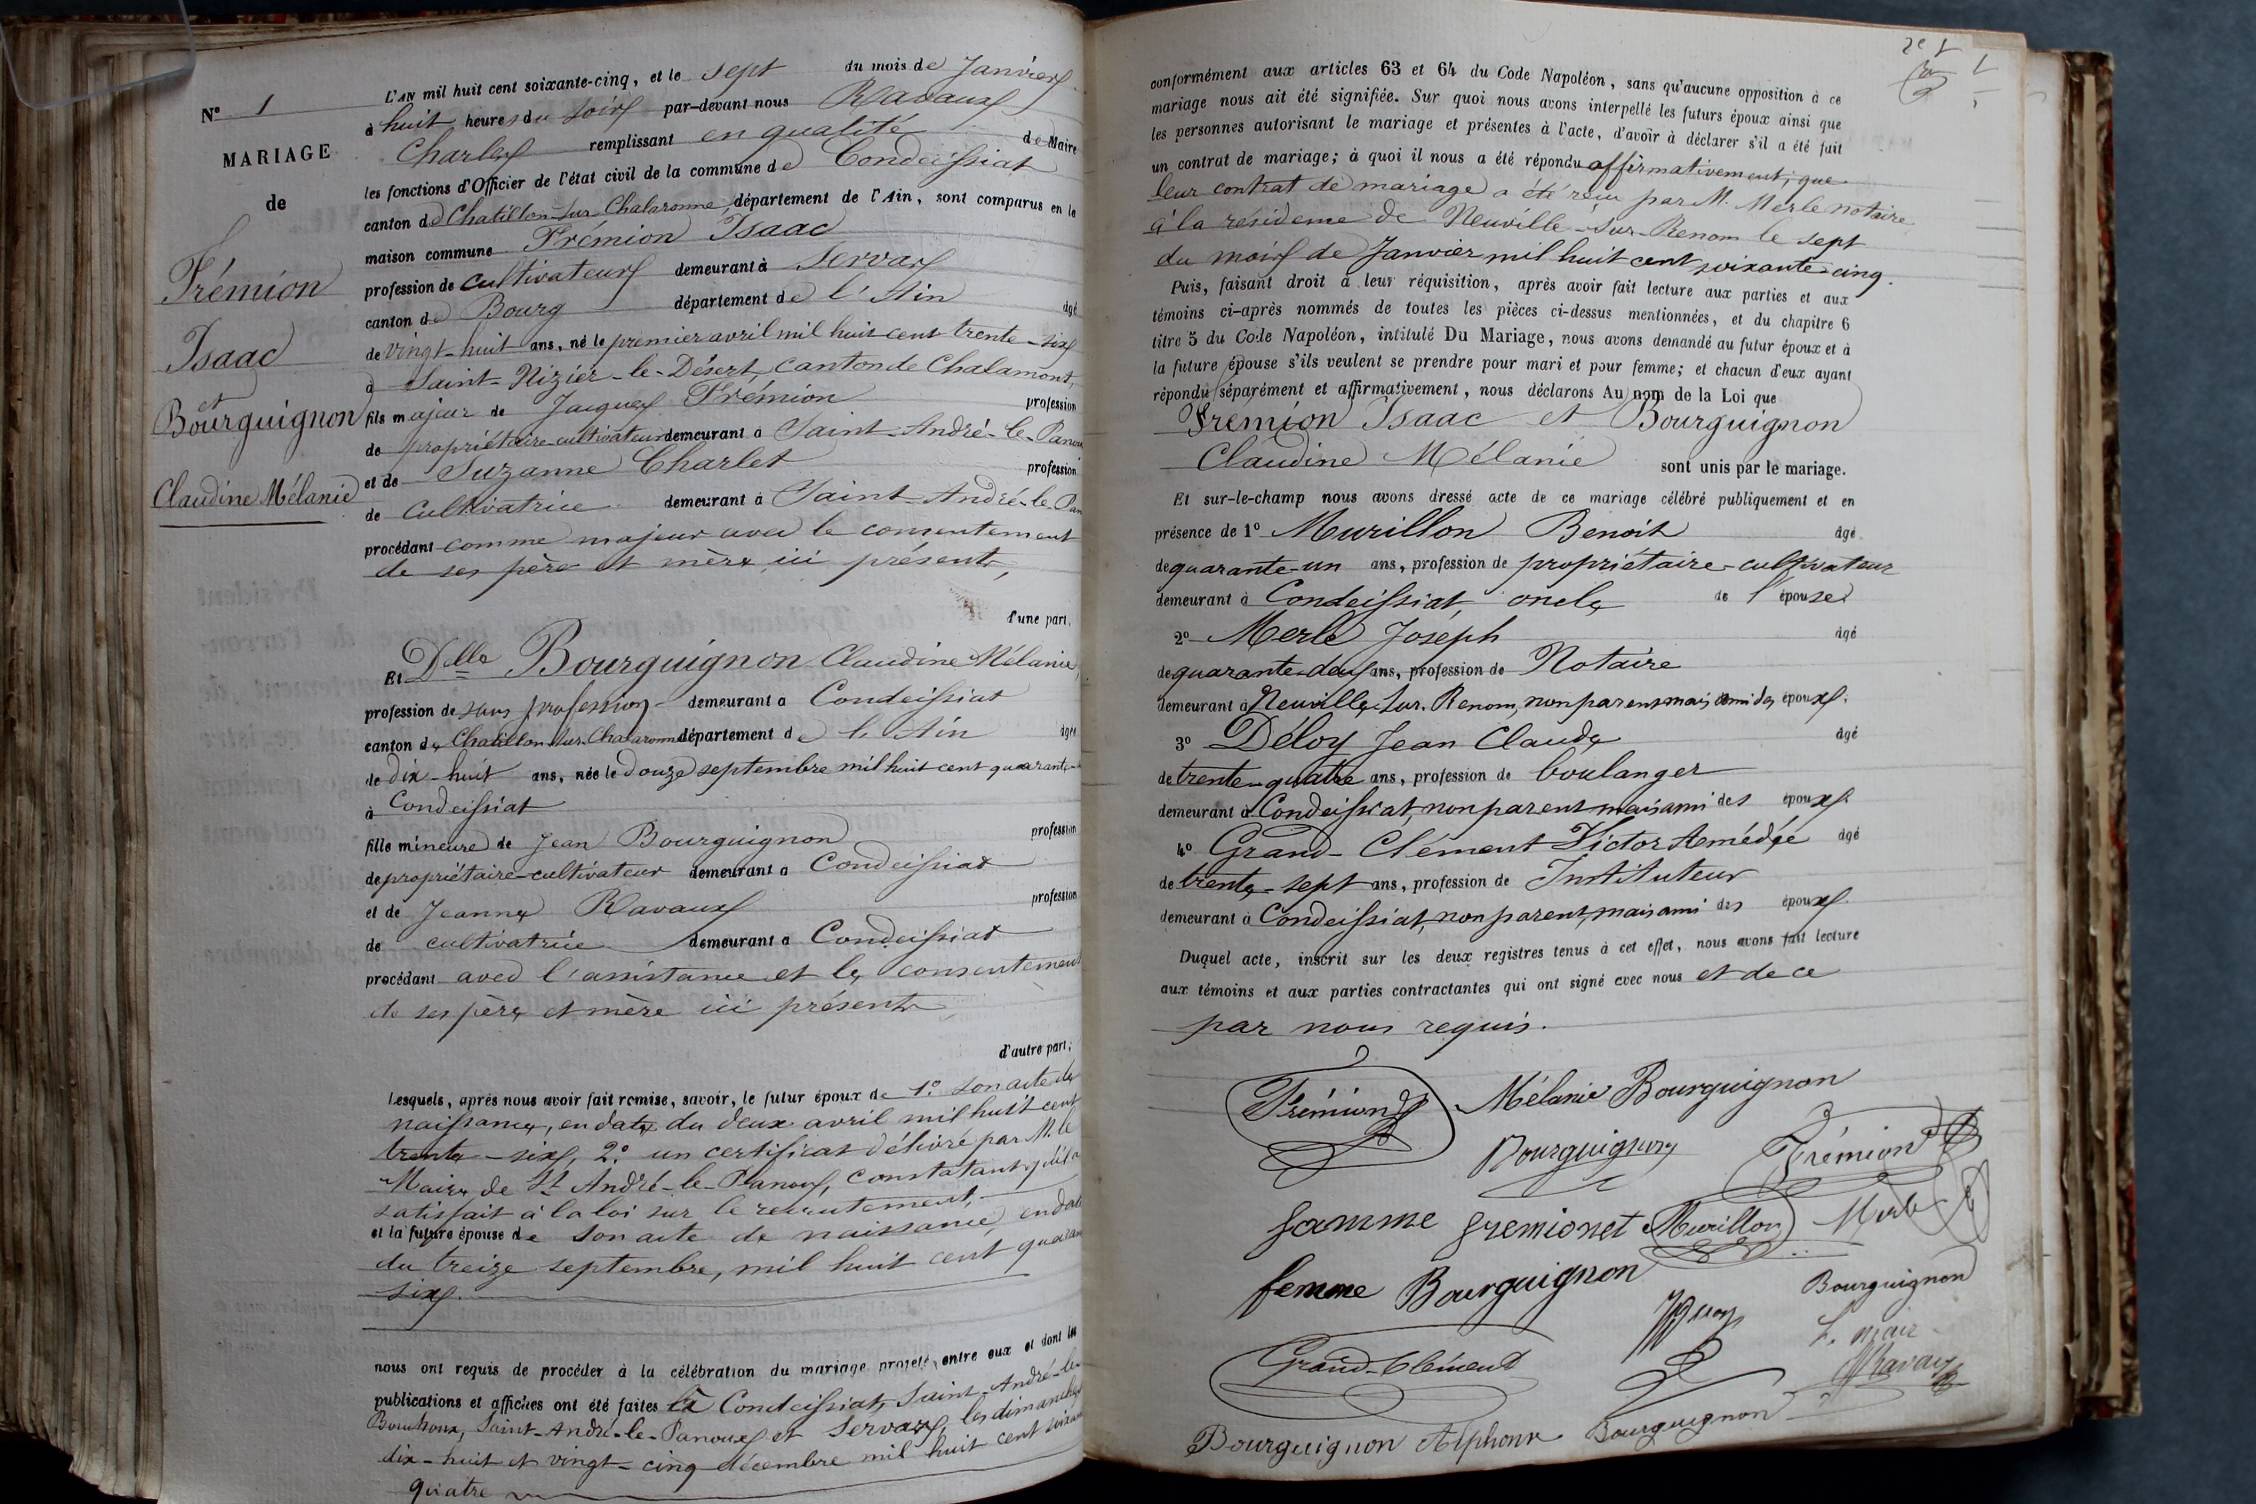 N° 1
MARIAGE
de
Frémion
Isaac
et
Bourguignon
Claudine Mélanie
L'AN mil huit cent soixante-cinq, et le sept du mois de Janvier
à huit heures du soir par-devant nous Ravaux
Charles remplissant en qualité de Maire
les fonctions d'Officier de l'état civil de la commune de Condeissiat
canton de Chatillon-sur-Chalaronne, département de l'Ain, sont comparus en la
maison commune Frémion Isaac
profession de cultivateur demeurant à Servas
canton de Bourg département de l'Ain âgé
de vingt-huit ans, né le premier avril mil huit cent trente-six
à Saint-Nizier-le-Désert, canton de Chalamont,
fils majeur de Jacques Frémion profession
de propriétaire-cultivateur demeurant à Saint-André-le-Panoux
et de Suzanne Charlet profession
de cultivatrice demeurant à Saint-André-le-Pan
procédant comme majeur avec le consentement
de ses père et mère ici présents,
d'une part.
Et Dlle Bourguignon Claudine Mélanie,
profession de sans profession demeurant à Condeissiat
canton de Chatillon-sur-Chalaronne département de l'Ain âgée
de dix-huit ans, née le douze septembre mil huit cent quarante-
à Condeissiat
fille mineure de Jean Bourguignon profession
de propriétaire-cultivateur demeurant à Condeissiat
et de Jeanne Ravaux profession
de cultivatrice demeurant à Condeissiat
procédant avec l'assistance et le consentement
de ses père et mère ici présents
d'autre part;
Lesquels, après nous avoir fait remise, savoir, le futur époux de 1° son acte de
naissance, en date du deux avril mil huit cent
trente-six, 2° un certificat délivré par M. le
Maire de St André-le-Panoux, constatant qu'il a
satisfait à la loi sur le recrutement,
et la future épouse de son acte de naissance, en date
du treize septembre, mil huit cent quaran
six.
nous ont requis de procéder à la célébration du mariage projeté entre eux et dont les
publications et affiches ont été faites à Condeissiat, Saint-André-le-
Bouchoux, Saint-André-le-Panoux et Servas, les dimanches
dix-huit et vingt-cinq décembre mil huit cent soixan
quatre
conformément aux articles 63 et 64 du Code Napoléon, sans qu'aucune opposition à ce
mariage nous ait été signifiée. Sur quoi nous avons interpellé les futurs époux ainsi que
les personnes autorisant le mariage et présentes à l'acte, d'avoir à déclarer s'il a été fait
un contrat de mariage; à quoi il nous a été répondu affirmativement; que
leur contrat de mariage a été reçu par M. Merle notaire
à la résidence de Neuville-sur-Renom le sept
du mois de Janvier mil huit cent soixante-cinq.
Puis, faisant droit à leur réquisition, après avoir fait lecture aux parties et aux
témoins ci-après nommés de toutes les pièces ci-dessus mentionnées, et du chapitre 6
titre 5 du Code Napoléon, intitulé Du Mariage, nous avons demandé au futur époux et à
la future épouse s'ils veulent se prendre pour mari et pour femme; et chacun d'eux ayant
répondu séparément et affirmativement, nous déclarons Au nom de la Loi que
Fremion Isaac et Bourguignon
Claudine Mélanie sont unis par le mariage.
Et sur-le-champ nous avons dressé acte de ce mariage célébré publiquement et en
présence de 1° Murillon Benoit âgé
de quarante-un ans, profession de propriétaire-cultivateur
demeurant à Condeissiat, oncle de l'épouse
2° Merle Joseph âgé
de quarante-deux ans, profession de Notaire
demeurant à Neuville-sur-Renom, non parent mais ami des époux.
3° Déloy Jean Claude âgé
de trente-quatre ans, profession de boulanger
demeurant à Condeissiat, non parent mais ami des époux.
4° Grand-Clément Victor Amédée âgé
de trente-sept ans, profession de Instituteur
demeurant à Condeissiat, non parent, mais ami des époux.
Duquel acte, inscrit sur les deux registres tenus à cet effet, nous avons fait lecture
aux témoins et aux parties contractantes qui ont signé avec nous et de ce
par nous requis.
Frémion Mélanie Bourguignon
Bourguignon Frémion
famme fremionet Murillon Merle
femme Bourguignon Bourguignon
Grand-Clément
Ravaux
Bourguignon Alphonse Bourguignon